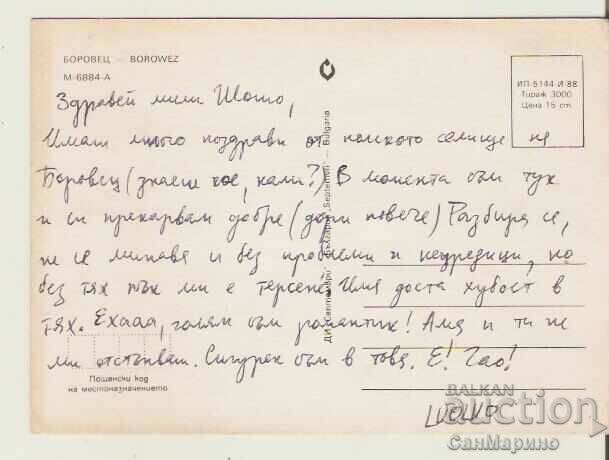 БОРОВЕЦ — BOROWEZ
М-6884-А
ИП 5144 И-88
Тираж 3000
Цена 15 ст.
Здравей мили Шошо,
Имаш много поздрави от полското селище на
Боровец (знаеш кое, нали?) В момента съм тук
и си прекарвам добре (дори повече) Разбира се,
не се минава и без проблеми и неуредици, но
без тях пък ми е терсене. Има доста хубост в
тях. Ехааа, голям съм романтик! Ама и ти не
ми отстъпваш. Сигурен съм в това. Е! Чао!
ДИ „Септември“ — България „Septemvri“ — Bulgaria
Пощенски код
на местоназначението
BALKAN
auction
СанМарино